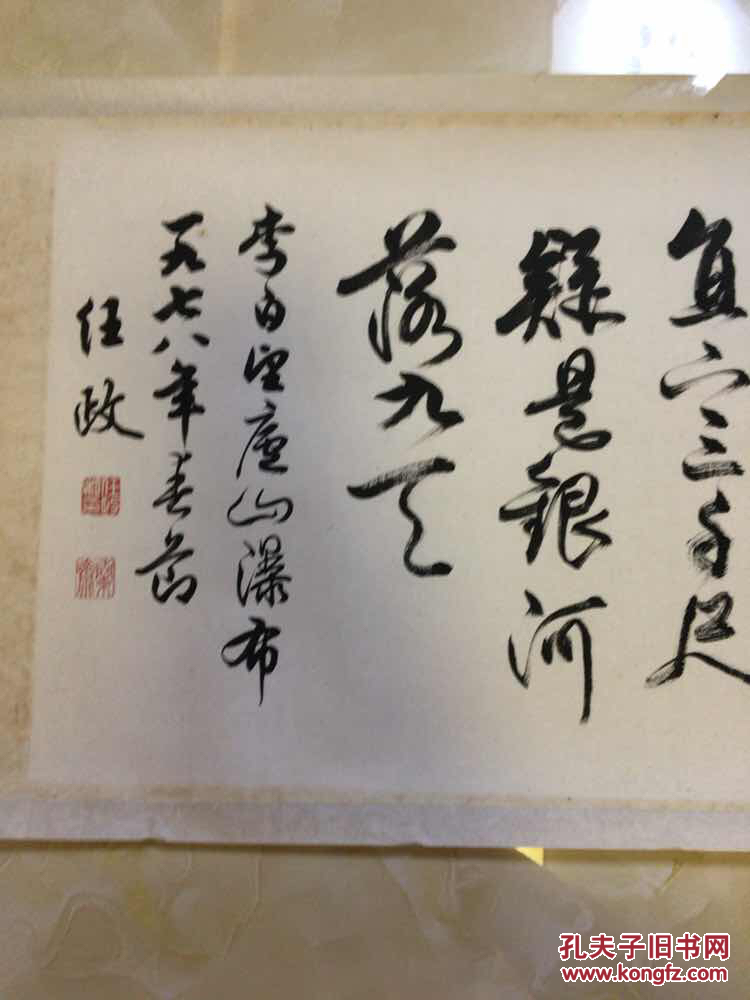 直下三千尺
疑是銀河
落九天
李白望廬山瀑布
一九七八年春節
任政
孔夫子旧书网
www.kongfz.com